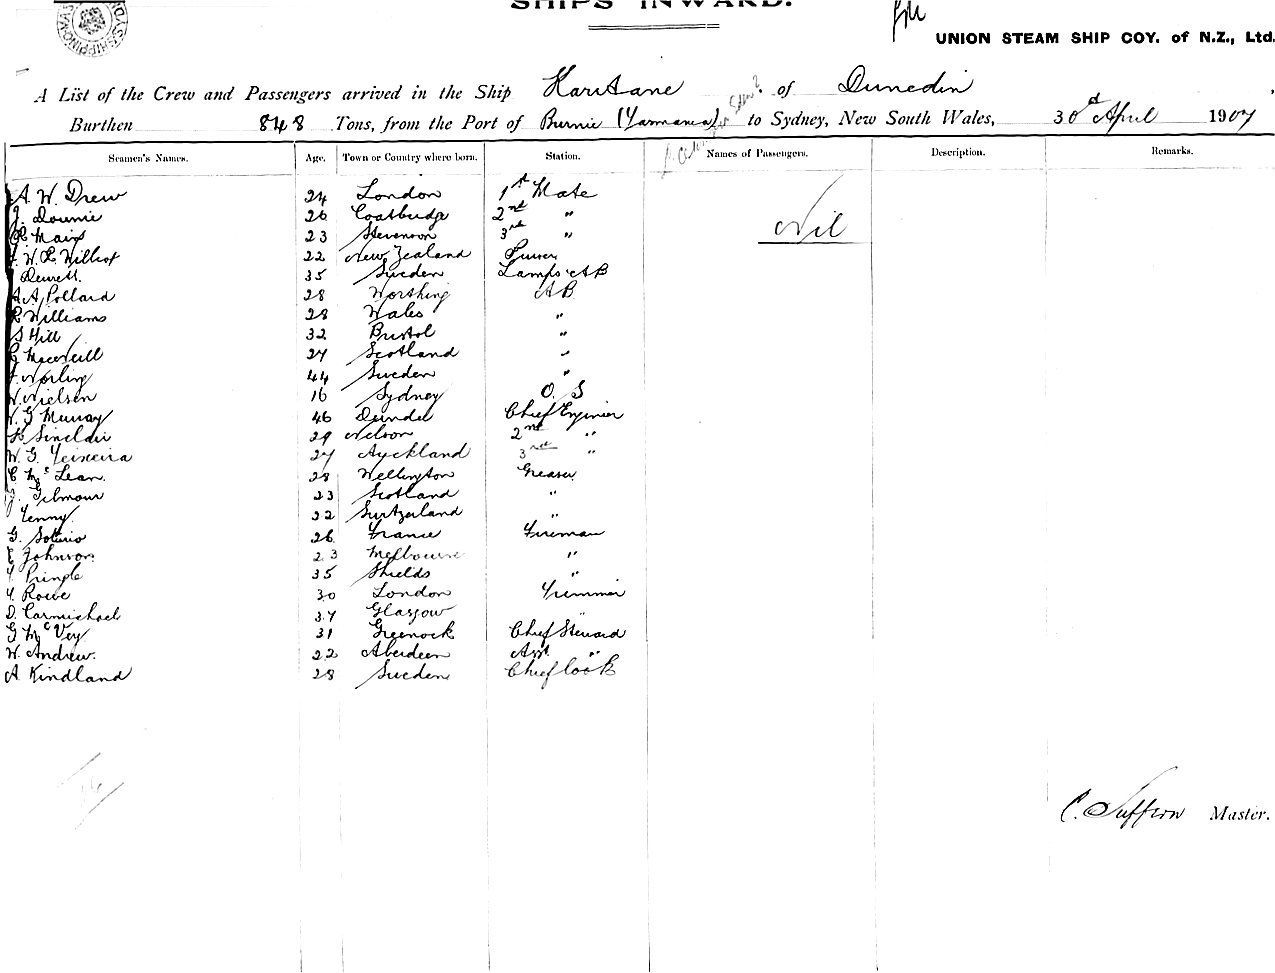 SHIPS INWARD.
UNION STEAM SHIP COY. of N.Z., Ltd.
A List of the Crew and Passengers arrived in the Ship Karitane of Dunedin
Burthen 848 Tons, from the Port of Burnie (Tasmania) to Sydney, New South Wales, 30th April 1907
Seamen's Names. Age. Town or Country where born. Station. Names of Passengers. Description. Remarks.
A. W. Drew 24 London 1st Mate Nil
J. Downie 26 Coatbridge 2nd "
Mair 23 Stevenson 3rd "
W. R. 22 New Zealand Purser
35 Sweden Lamps AB
A. A. Pollard 28 Worthing AB
R Williams 28 Wales "
S Hill 32 Bristol "
MacNeill 27 Scotland "
Norling 44 Sweden "
W. Nielsen 16 Sydney O. S
W. G Murray 46 Dundee Chief Enginier
Sinclair 29 Nelson 2nd "
W. G. Teixeira 27 Auckland 3rd "
C McLean. 28 Wellington Greaser
J. Gilmour 23 Scotland "
Tenny 22 Switzerland "
G. Soterio 26 France Fireman
E Johnson 23 Melbourne "
T Pringle 35 Shields "
T. Rowe 30 London Trimmer
D. Carmichael 37 Glasgow "
G McVey 31 Greenock Chief Steward
W. Andrew. 22 Aberdeen Asst. "
A Kindland 28 Sweden Chief Cook
C. Suffern Master.